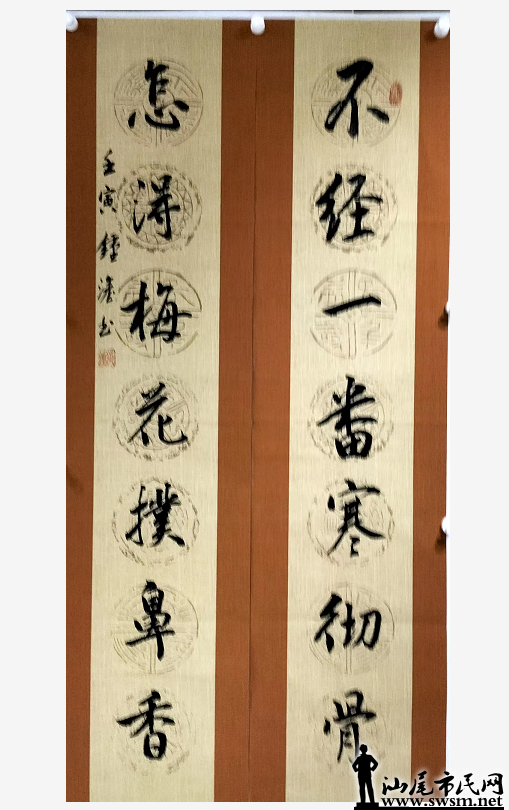 不经一番寒彻骨
怎得梅花撲鼻香
壬寅 书
汕尾市民网
www.swsm.net